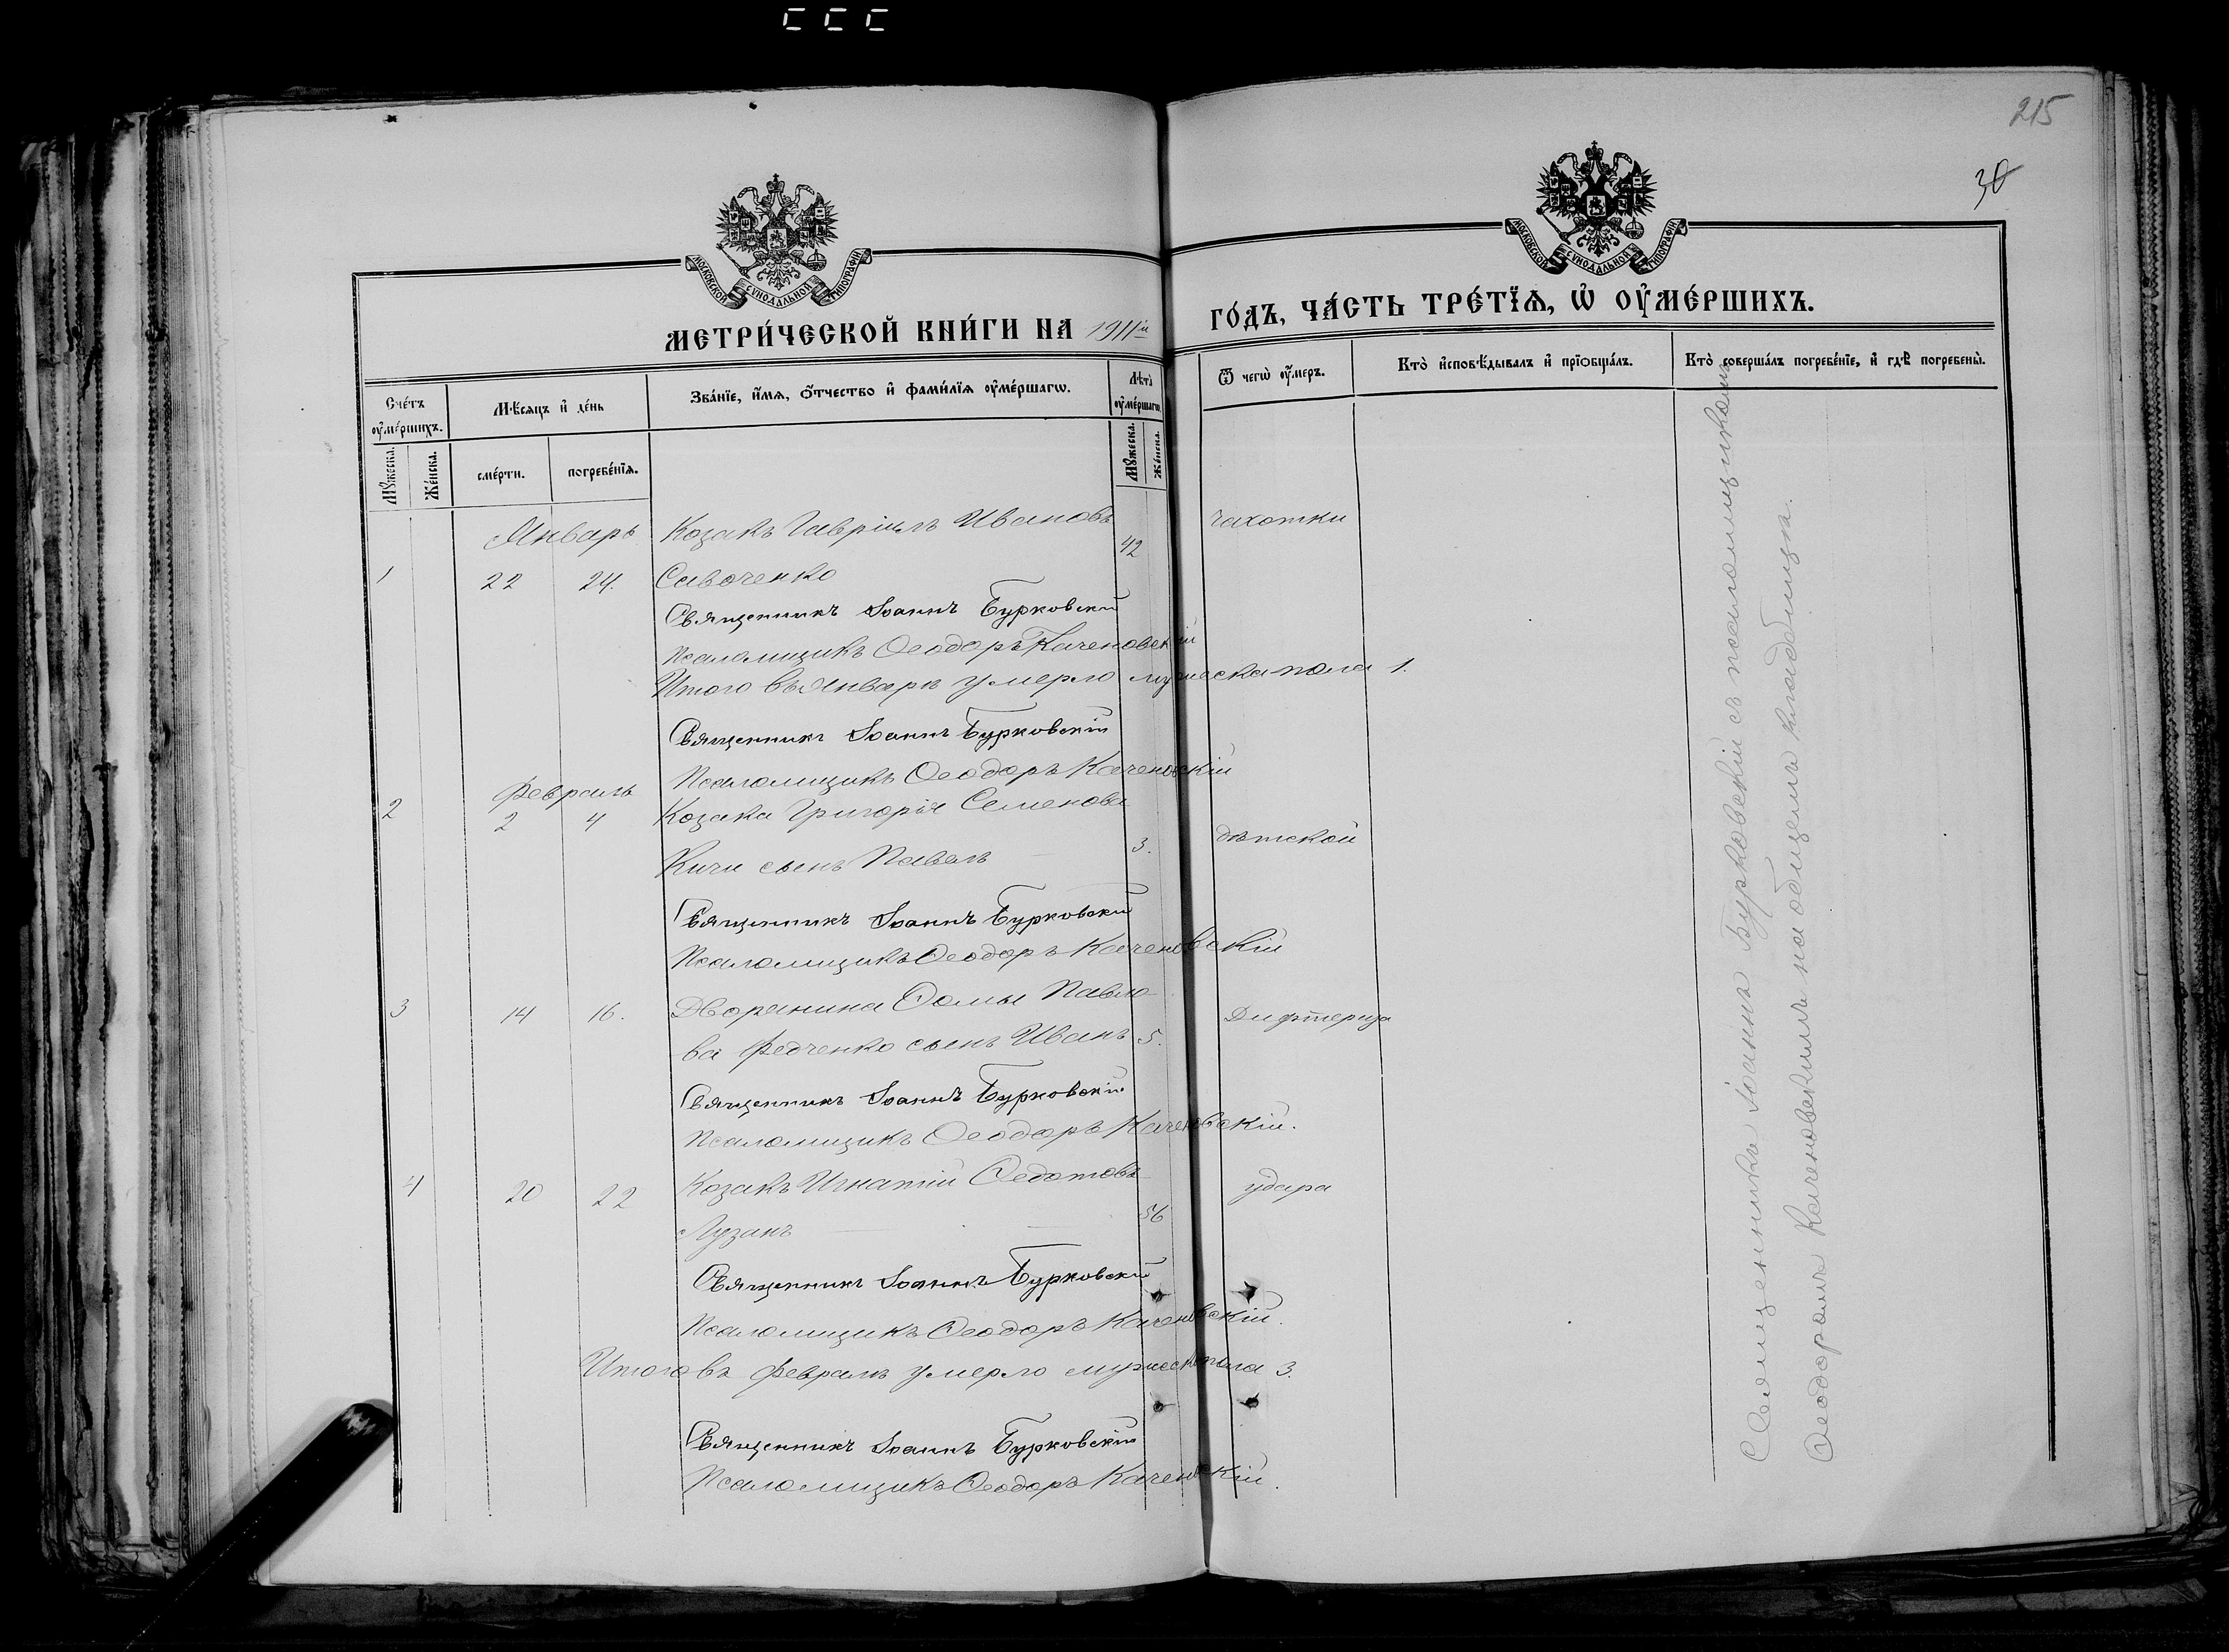 215
30
МОСКОВСКОЙ СУНОДАЛЬНОЙ ТИПОГРАФІИ
МОСКОВСКОЙ СУНОДАЛЬНОЙ ТИПОГРАФІИ
МЕТРИ́ЧЕСКОЙ КНИ́ГИ НА 1911й ГО́ДЪ, ЧА́СТЬ ТРЕ́ТЇѦ, Ѡ҆ ОУ҆МЕ́РШИХЪ.
Сче́тъ оу҆ме́ршихъ.
Мѣ́сяцъ и҆ де́нь
Зва́нїе, и҆́мѧ, ѻ҆́тчество и҆ фами́лїѧ оу҆ме́ршагѡ.
Лѣ́та оу҆ме́ршагѡ.
Ѿ чегѡ̀ оу҆́меръ.
Кто̀ и҆сповѣ́дывалъ и҆ прїѡбща́лъ.
Кто̀ соверша́лъ погребе́нїе, и҆ гдѣ̀ погребены̀.
Мꙋ́жеска.
Же́нска.
сме́рти.
погребе́нїѧ.
Мꙋ́жеска.
Же́нска.
Январь Козакъ Гавріилъ Ивановъ 42 чахотки
1 22 24. Савоченко
Священникъ Іоаннъ Бурковскій
Псаломщикъ Ѳеодоръ Каченовскій
Итого въ Январѣ умерло мужеска пола 1.
Священникъ Іоаннъ Бурковскій
Псаломщикъ Ѳеодоръ Каченовскій
Февраль
2 2 4 Козака Григорія Семенова
Кичи сынъ Павелъ 3. дѣтской
Священникъ Іоаннъ Бурковскій
Псаломщикъ Ѳеодоръ Каченовскій
3 14 16. Дворянина Ѳомы Павло-
ва Федченко сынъ Иванъ 5. Дифтерита
Священникъ Іоаннъ Бурковскій
Псаломщикъ Ѳеодоръ Каченовскій.
4 20 22 Козакъ Игнатій Ѳедотовъ удара
Лузанъ 56
Священникъ Іоаннъ Бурковскій
Псаломщикъ Ѳеодоръ Каченовскій.
Итого въ Февралѣ умерло мужеска пола 3.
Священникъ Іоаннъ Бурковскій
Псаломщикъ Ѳеодоръ Каченовскій.
Священникъ Іоаннъ Бурковскій съ псаломщикомъ
Ѳеодоромъ Каченовскимъ на общемъ кладбищѣ.